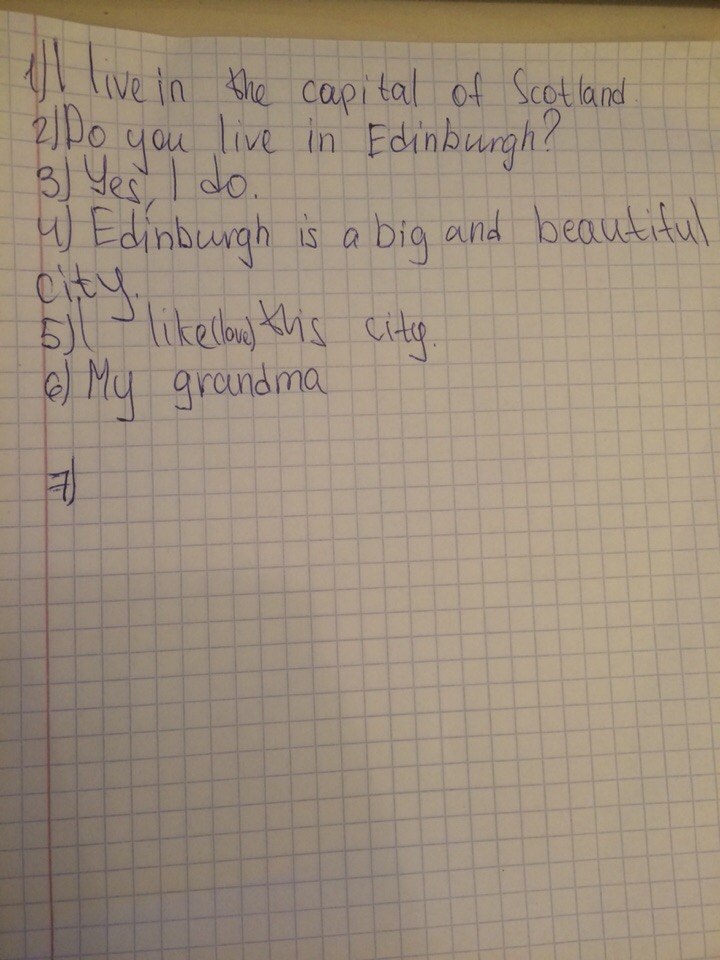 1) I live in the capital of Scotland.
2) Do you live in Edinburgh?
3) Yes, I do.
4) Edinburgh is a big and beautiful
city.
5) I like (love) this city.
6) My grandma
7)